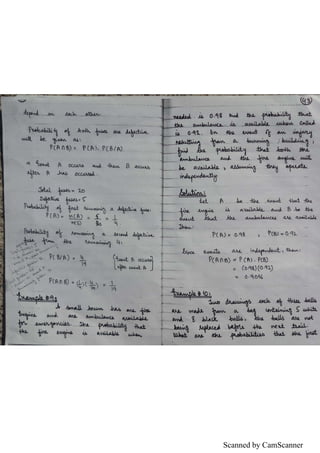 depend on each other.
Probability of both fuses are defective
will be given as:
P(A∩B) = P(A). P(B/A)
* Event A occurs and then B occurs
after A has occured.
Total fuses = 20
Defective fuses = 5
Probability of first removing a defective fuse:
P(A) = n(A)/n(S) = 5/20 = 1/4
Probability of removing a second defective
fuse from the remaining 4:
P(B/A) = 4/19 (Event B occurs
after event A)
P(A∩B) = (1/4)(4/19) = 1/19
Example # 9:
A small town has one fire
Engine and one ambulance available
for emergencies. The probability that
the fire engine is available when
(43)
needed is 0.98 and the probability that
the ambulance is available when called
is 0.92. In the event of an injury
resulting from a burning building,
find the probability that both the
ambulance and the fire engine will
be available, assuming they operate
independently
Solution:
Let A be the event that the
fire engine is available and B be the
event that the ambulance are available
Then:
P(A) = 0.98 , P(B) = 0.92
Since events are independent, then:
P(A∩B) = P(A). P(B)
= (0.98)(0.92)
= 0.9016
Example # 10:
Two drawings each of three balls
are made from a bag containing 5 white
and 8 black balls, the balls are not
being replaced before the next trail.
What are the probabilities that the first
Scanned by CamScanner